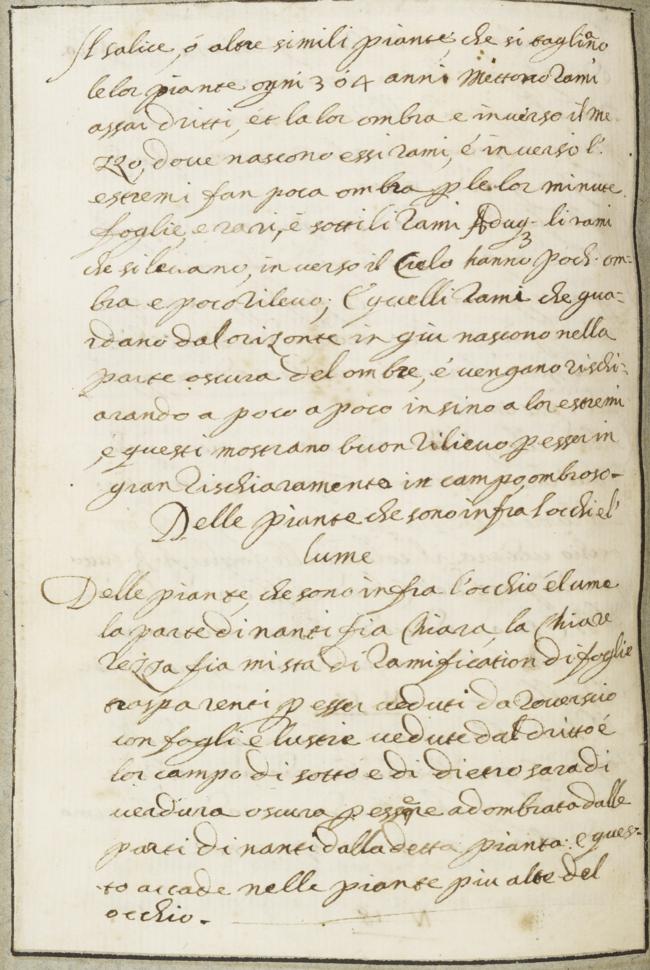 Il salice, ó altre simili piante, che si tagliano
le lor piante ogni 3 ó 4 anni Mettono rami
assai dritti, et la lor ombra e inverso il me
zzo, dove nascono essi rami, é inverso l'
estremi fan poca ombra p le lor minute
foglie, e rari, é sottili rami li rami
che si levano, in verso il Cielo hanno poch om-
bra e poco rilievo; é quelli rami che gua-
rdano dal orizonte in giu nascono nella
parte oscura del ombre, é vengano rischi-
arando a poco a poco in sino a lor estremi
e questi mostrano buon rilievo p esser in
gran rischiaramento in campo ombroso-
Delle piante che sono infra l'occhi el'
lume
Delle piante, che sono infra l'occhio él ume
la parte dinanti fia Chiara, la Chiare
rezza fia mista di ramification di foglie
trasparenti p esser veduti da roverscio
con fogli e lustre vedute dal dritto é
lor campo di sotto e di dietro sara di
verdura oscura p essere adombrata dalle
parti dinanti dalla detta pianta: e ques-
to accade nelle piante piu alte del
occhio.